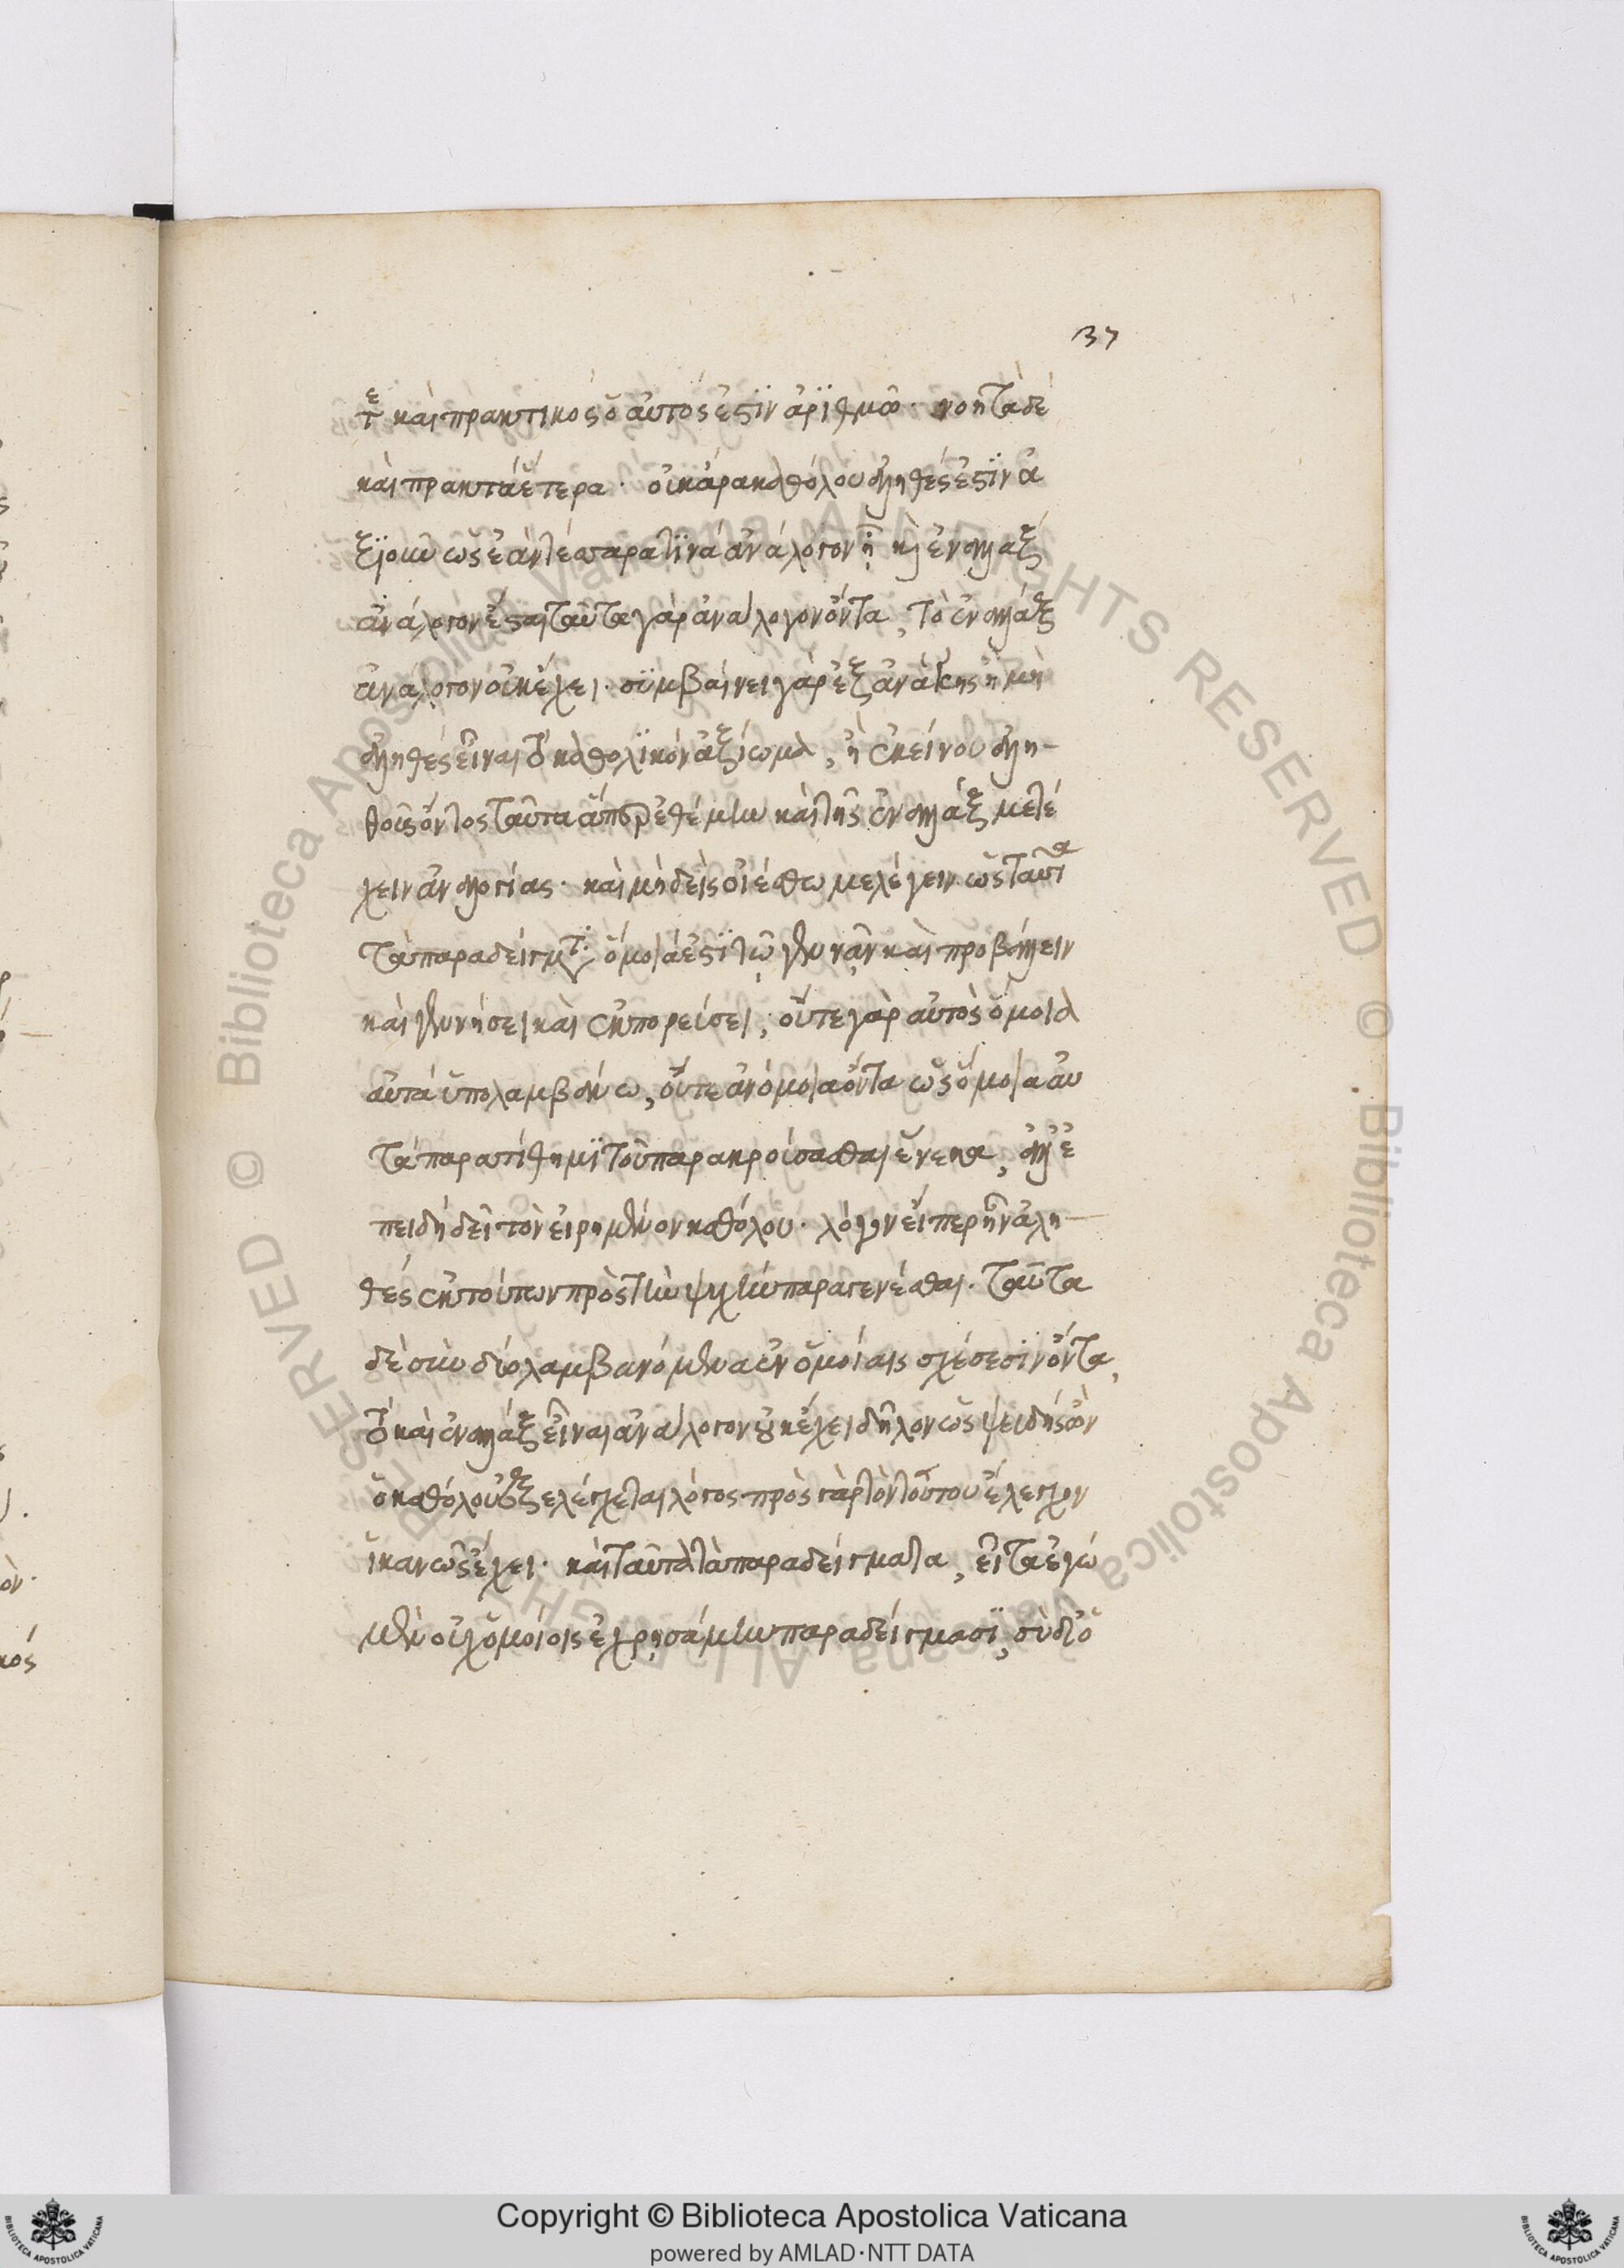 37
τε καὶ πρακτικὸς ὁ αὐτός ἐστιν ἀριθμῶ· νοητὰ δὲ
καὶ πρακτὰ ἕτερα· οὐκ ἄρα καθόλου ἀληθές ἐστιν ἀ
ξιοῦν ὡς ἐὰν τέσσαρα τινὰ ἀνάλογον ᾖ κὶ ἐναλλὰξ
ἀνάλογον ἔσται ταῦτα γὰρ ἀνάλογον ὄντα, τὸ ἐναλλὰξ
ἀνάλογον οὐκ ἔχει· συμβαίνει γὰρ ἐξ ἀνάγκης ἢ μὴ
ἀληθές εἶναι τὸ καθολικὸν ἀξίωμα, ἢ ἐκείνου ἀλη-
θοῦς ὄντος ταῦτα ἅπερ ἐθέμην καὶ τῆς ἐναλλὰξ μετέ
χειν ἀναλογίας· καὶ μηδεὶς οἰέσθω με λέγειν ὡς ταῦτα
τὰ παραδείγματα ὅμοιά ἐστι τῷ γεννᾶν καὶ προβάλλειν
καὶ γεννήσει καὶ ἐκπορεύσει, οὔτε γὰρ αὐτὸς ὅμοια
αὐτὰ ὑπολαμβάνω, οὔτε ἀνόμοια ὄντα ὡς ὅμοια αὐ
τὰ παρατίθημι τοῦ παρακρούσασθαι ἕνεκα, ἀλλ' ἐ
πειδὴ δεῖ τὸν εἰρημένον καθόλου· λόγον εἴπερ ἦν ἀλη-
θές ἐκ τούτων πρὸς τὴν ψυχὴν παραγενέσθαι· ταῦτα
δὲ συνδιαλαμβανόμενα ἐν ὁμοίαις σχέσεσιν ὄντα,
τὸ καὶ ἐναλλὰξ εἶναι ἀνάλογον οὐκ ἔχει δῆλον ὡς ψευδὴς ὢν
ὁ καθόλου ἐξελέγχεται λόγος· πρὸς γὰρ τὸν τούτου ἔλεγχον
ἱκανῶς ἔχει· καὶ ταῦτα τὰ παραδείγματα, εἶτα ἐγώ
μὲν οὐχ ὁμοίοις ἐχρησάμην παραδείγμασι, σὺ δι' ὁ